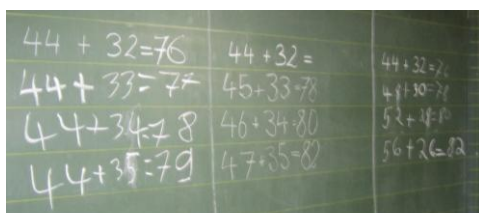 44 + 32=76
44 + 33=77
44+34=78
44+35=79
44+32=
45+33=78
46+34=80
47+35=82
44+32=76
48+30=78
52+28=80
56+26=82